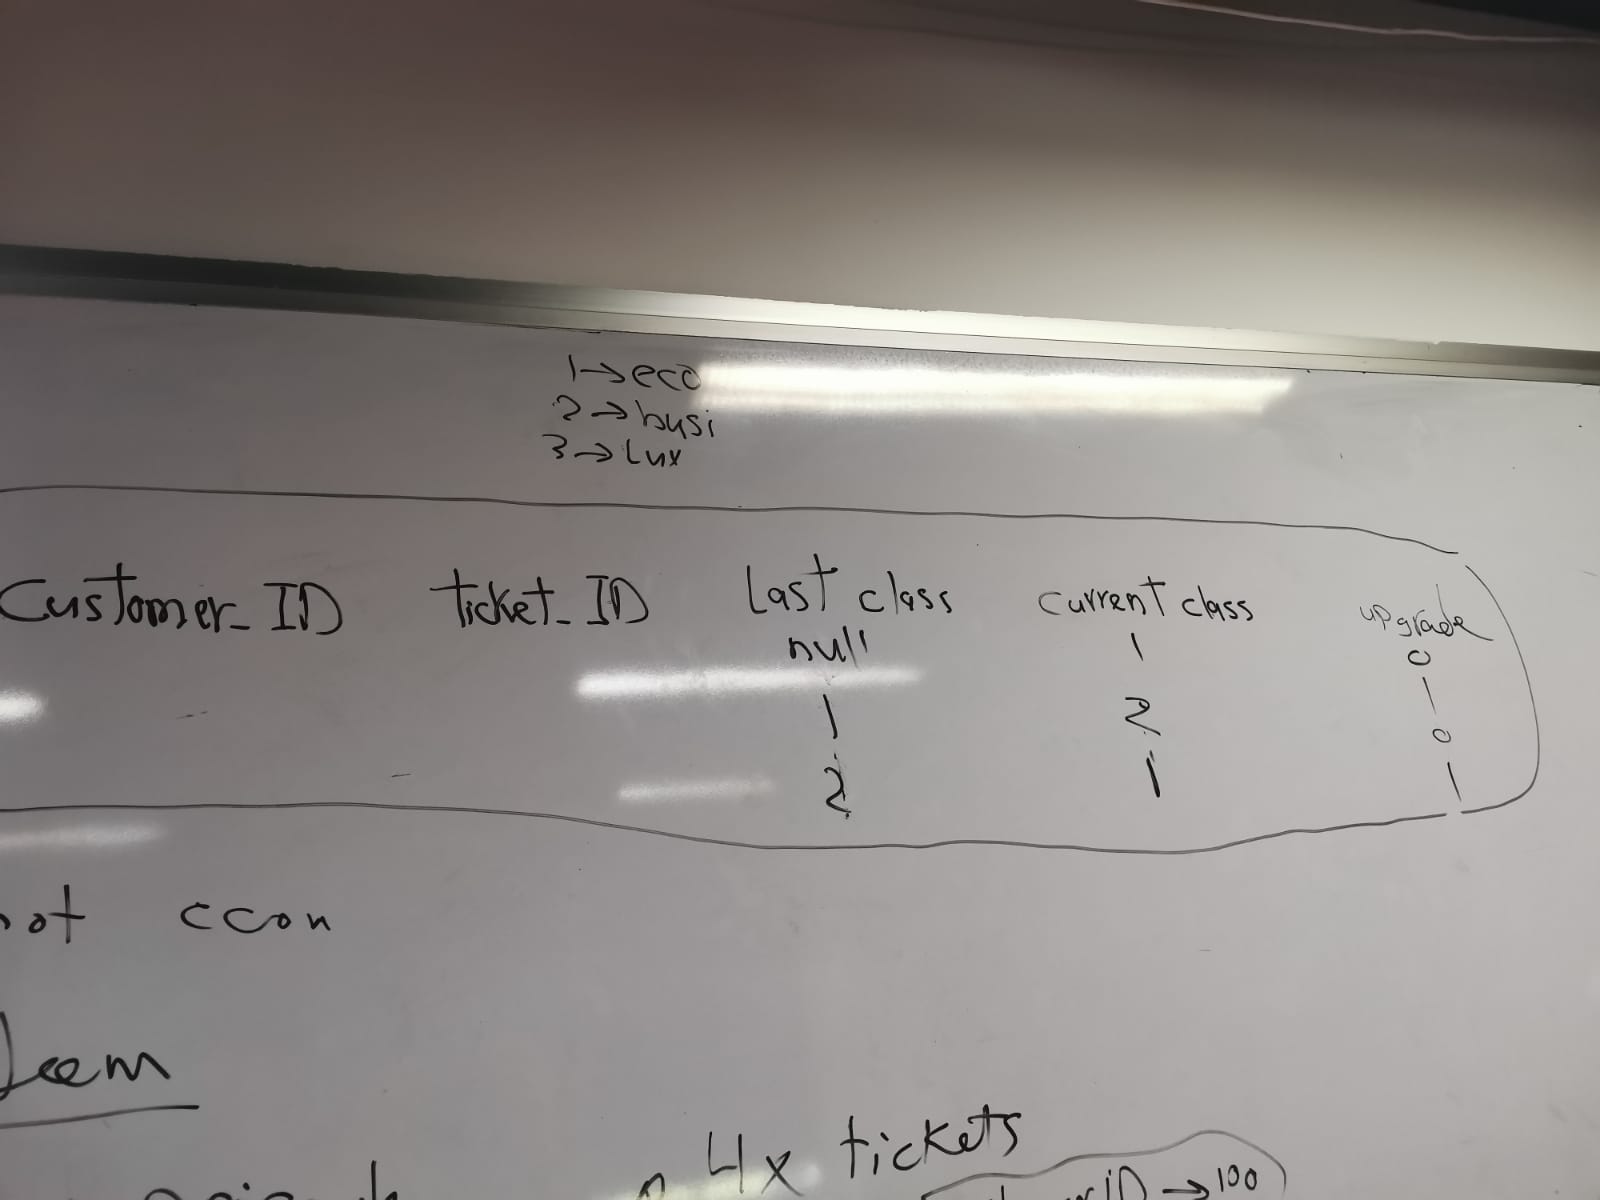 1→eco
2→busi
3→Lux
Customer_ID ticket_ID Last class current class upgrade
null 1 0
1 2 1
0
2 1 1
not ccon
4x tickets
ID →100